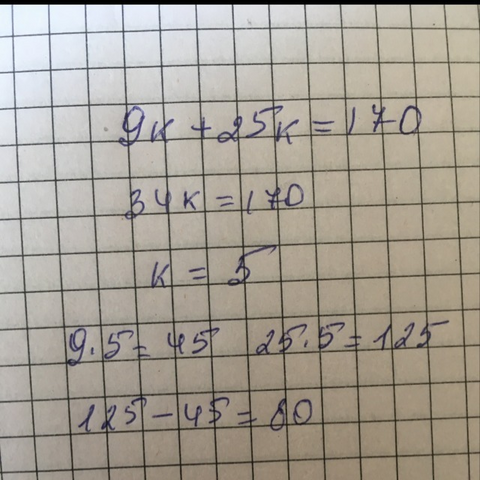 9к + 25к = 170
34к = 170
к = 5
9·5 = 45 25·5 = 125
125 - 45 = 80